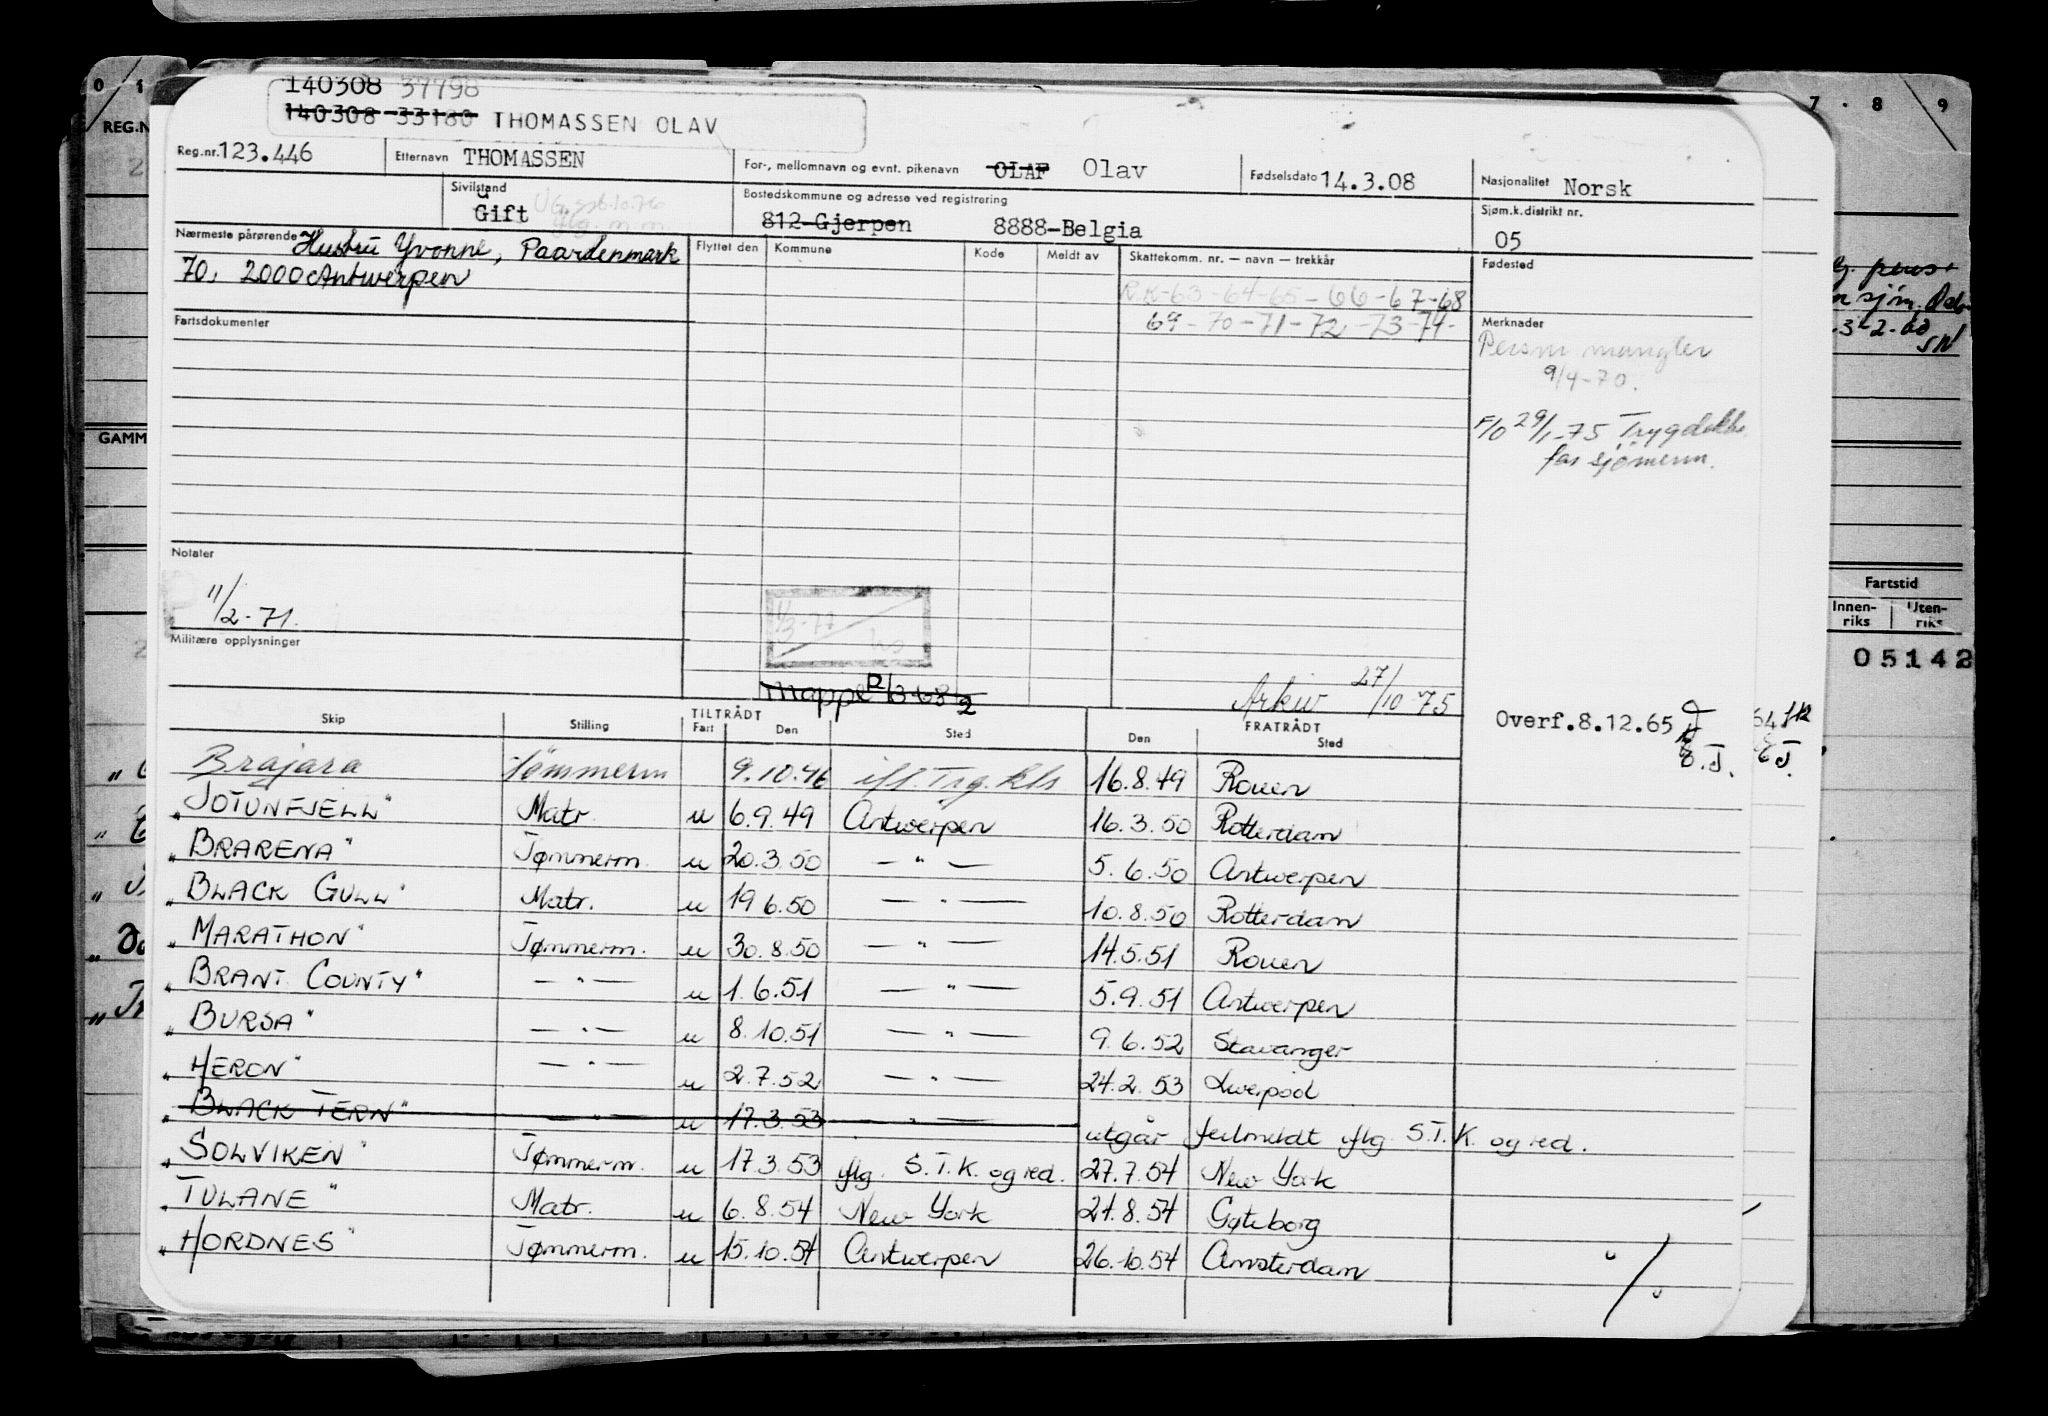 140308 37798
140308 33180 THOMASSEN OLAV
Reg.nr. 123.446 Etternavn THOMASSEN For-, mellomnavn og evnt. pikenavn OLAF Olav Fødselsdato 14.3.08 Nasjonalitet Norsk
Sivilstand Gift U Bostedskommune og adresse ved registrering 812-Gjerpen 8888-Belgia Sjøm.k.distrikt nr. 05
Nærmeste pårørende Hustru Yvonne, Paardenmark
70, 2000 Antwerpen
Flyttet den Kommune Kode Meldt av Skattekomm. nr. — navn — trekkår Fødested
RK-63-64-65-66-67-68
69-70-71-72-73-74-
Fartsdokumenter
Merknader
Persnr mangler
9/4-70.
F/O 29/1-75 Trygdekke
for sjømenn.
Notater
11/2-71.
Militære opplysninger
1/3-77
Mappe
Arkiv 27/10-75
Overf.8.12.65
8.J.
Skip Stilling TILTRÅDT Fart Den Sted FRATRÅDT Den Sted
Brajara Tømmerm 9.10.46 ifl. Trg.kls 16.8.49 Rouen
"JOTUNFJELL" Matr. u 6.9.49 Antwerpen 16.3.50 Rotterdam
"BRARENA" Tømmerm. u 20.3.50 — " — 5.6.50 Antwerpen
"BLACK GULL" Matr. u 19 6.50 — " — 10.8.50 Rotterdam
"MARATHON" Tømmerm. u 30.8.50 — " — 14.5.51 Rouen
"BRANT COUNTY" — " — u 1.6.51 — " — 5.9.51 Antwerpen
"BURSA" — " — u 8.10.51 — " — 9.6.52 Stavanger
"HERON" — " — u 2.7.52 — " — 24.2.53 Liverpool
"BLACK TERN" — " — u 17.3.53 — " — utgår feilmeldt iflg. S.T.K. og red.
"SOLVIKEN" Tømmerm. u 17.3.53 iflg. S.T.K. og red. 27.7.54 New York
"TULANE" Matr. u 6.8.54 New York 21.8.54 Gøteborg
"HORDNES" Tømmerm. u 15.10.54 Antwerpen 26.10.54 Amsterdam
0
REG.N
GAMM
7 . 8 9
pens
sjøm.
3-2-60
Fartstid
Innen-
riks
Uten-
riks
05142